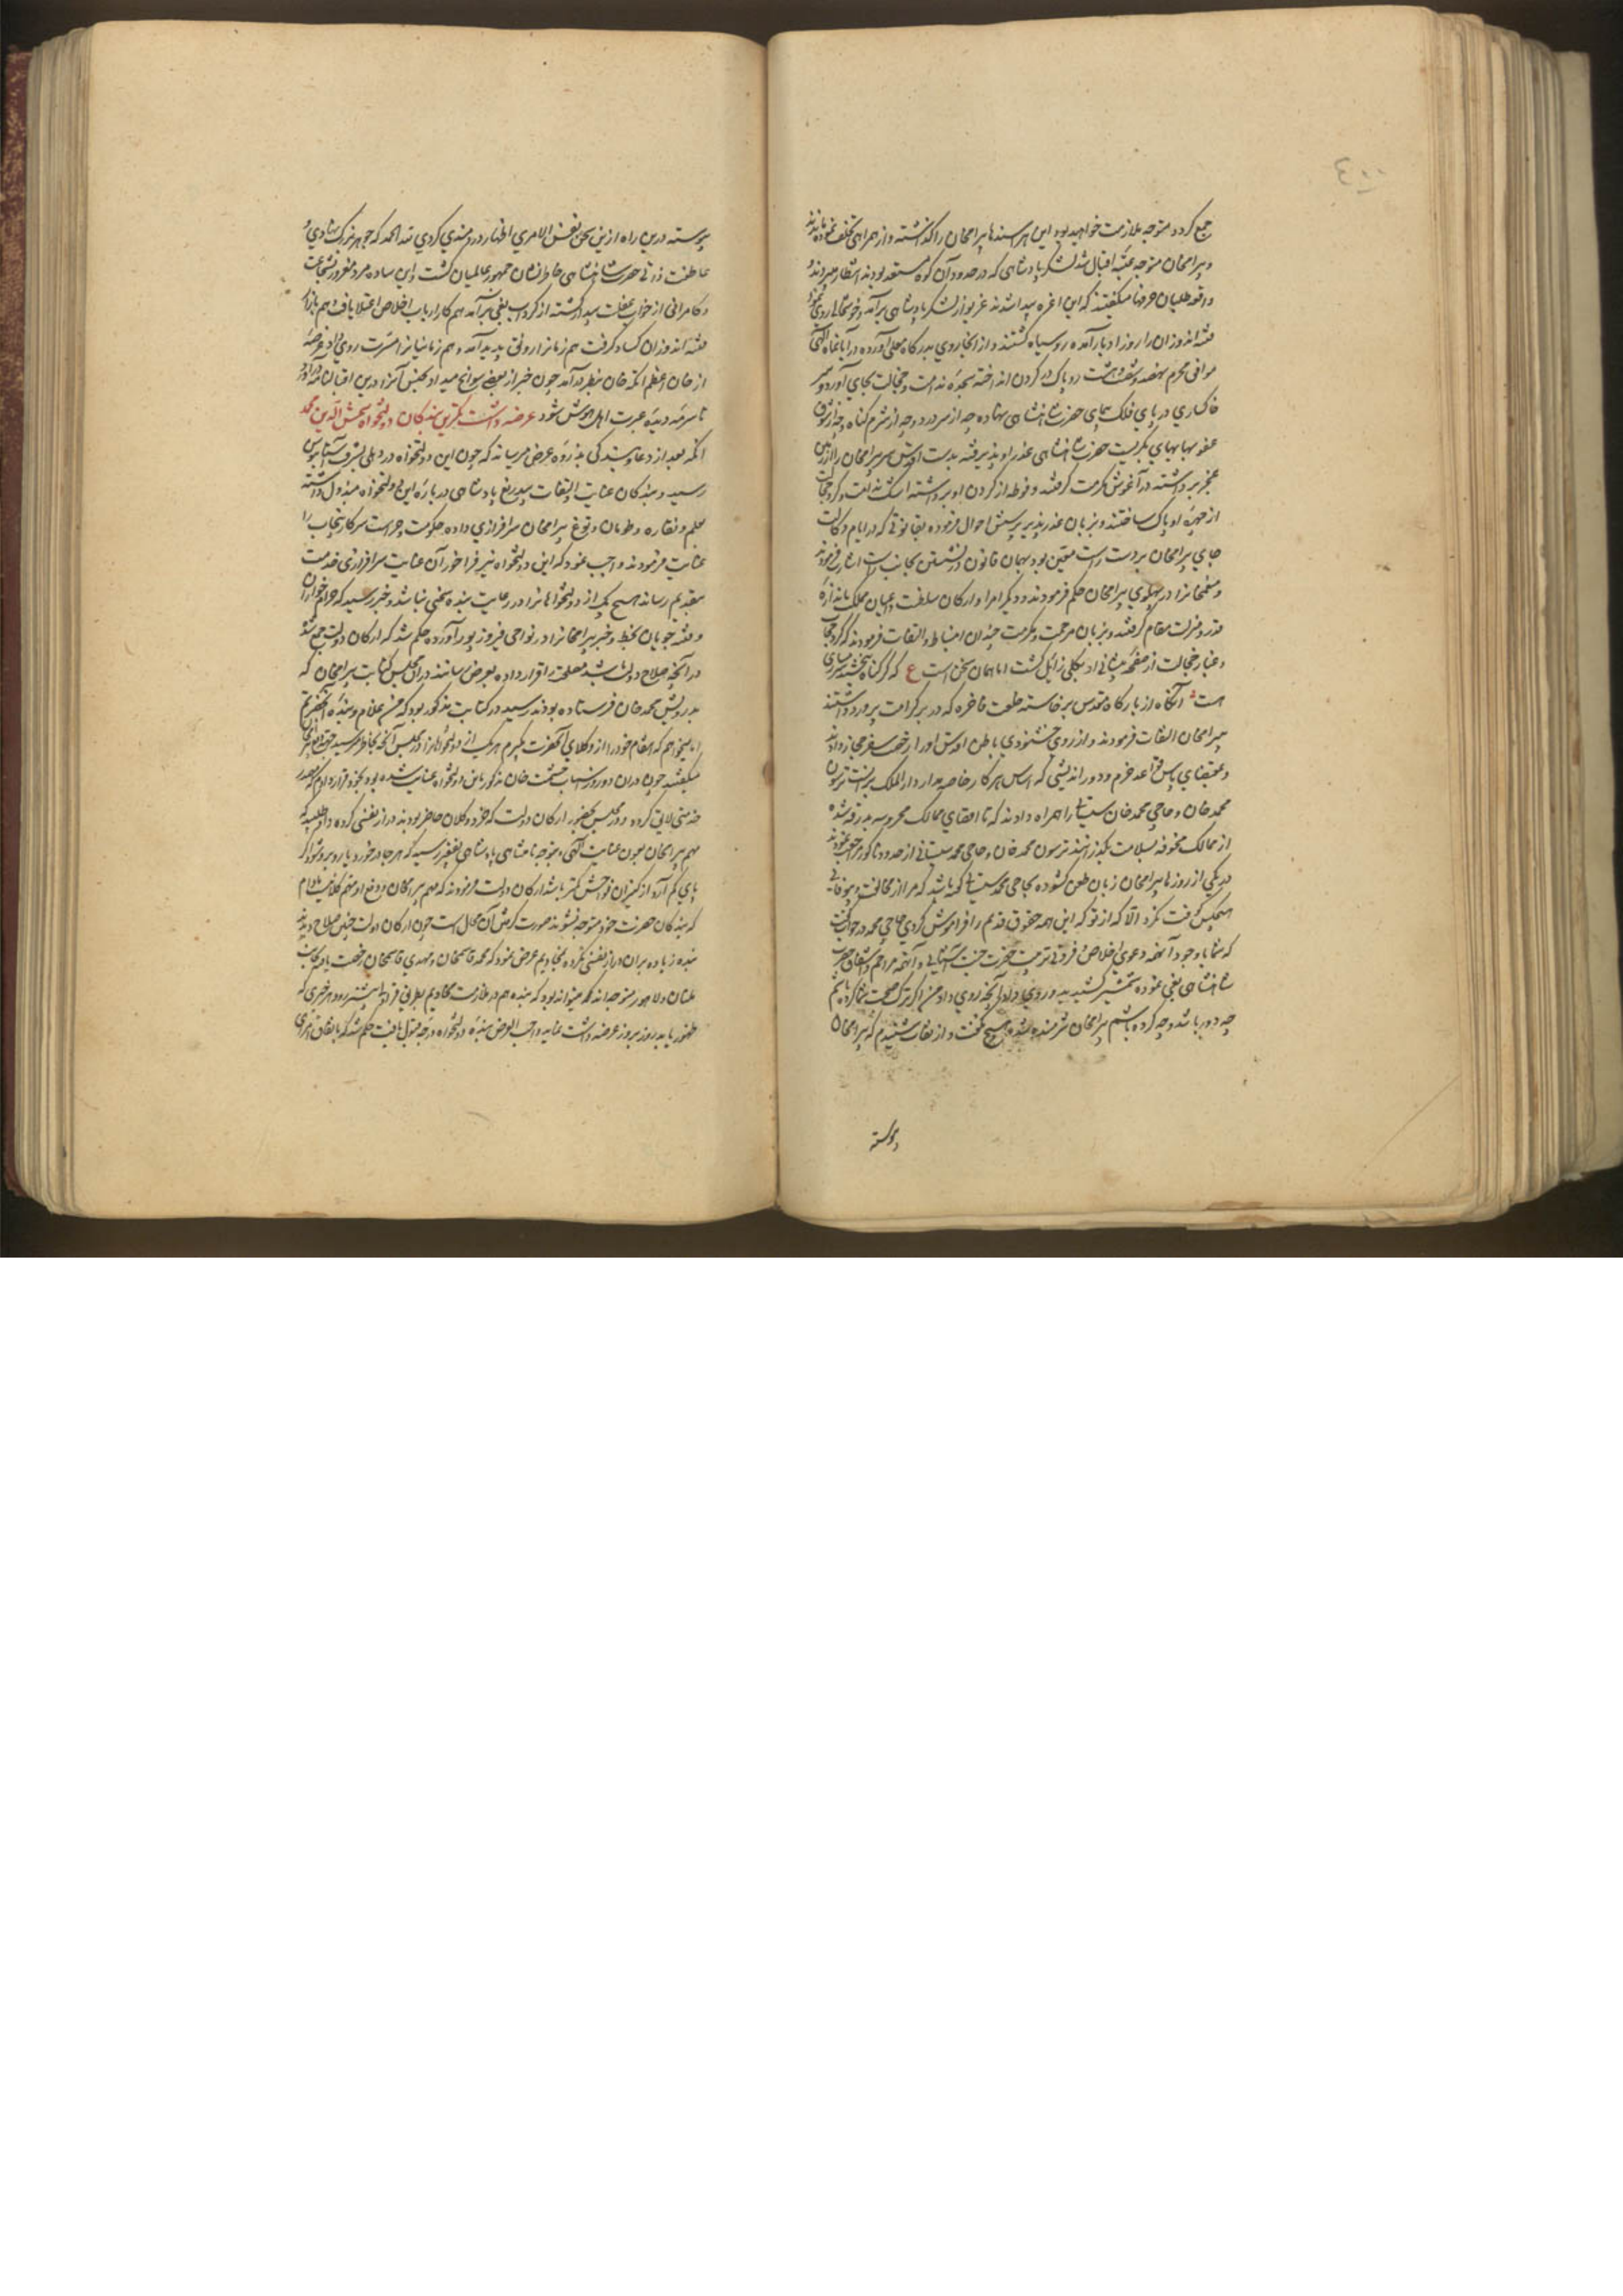 جمع کرده متوجه ملازمت خواهید بود این هر سندها بیرامخان را گذاشته و از همراهی تخلف نمودند
و بیرامخان متوجه عتبه اقبال شد لشکر پادشاهی که در حدود آن کوه مستعد بودند انتظار میبردند و
واقعه طلبان حرفها میگفتند که این اغره پیدا شدند غریو از لشکر پادشاهی برآمد و خوشحالی روی نمود
فتنه اندوزان را روز ادبار آمده روسیاه گشتند و از آنجا روی بدرگاه معلی آورده در آبانماه الهی
موافق محرم نهصد و شصت و هشت روپاک در گردن انداخته سجده ندامت و خجالت بجای آورد و سر
خاکساری در پای فلک سای حضرت شاهنشاهی نهاده چه از سرور و چه از شرم گناه و چه از شوق
عفو بهایهای بگریست حضرت شاهنشاهی عذر او پذیرفته بدست اقدس سر بیرامخان را از زمین
عجز برداشته در آغوش مکرمت گرفتند و فوطه از گردن او برداشته اشک ندامت و گرد خجالت
از چهره او پاک ساختند و بزبان عذرپذیر پرسش احوال فرموده بقانونی که در ایام وکالت
جای بیرامخان بر دست راست معین بود بهمان قانون در نشستن بجانب راست اشارت فرمودند
و منعمخانرا در پهلوی بیرامخان حکم فرمودند و دیگر امرا و ارکان سلطنت و اعیان مملکت باندازه
قدر و منزلت مقام گرفتند و بزبان مرحمت و مکرمت چندان انبساط و التفات فرمودند که گرد حجاب
و غبار خجالت از صفحه پیشانی او بکلی زائل گشت اما همان سخن است ع که گر گناه بخشند شرمساری
هست آنگاه از بارگاه مقدس برخاسته خلعت فاخره که در بر کرامت پرور داشتند
ببیرامخان التفات فرمودند و از روی خشنودی باطن اقدس او را رخصت سفر حجاز دادند
و بمقتضای پاس قواعد حزم و دوراندیشی که اساس هر کار خاصه مدار دارالملک برآنست ترسون
محمد خان و حاجی محمد خان سیستانی را همراه دادند که تا اقصای ممالک محروسه بدرقه شده
از ممالک مخوفه بسلامت بگذرانند ترسون محمد خان و حاجی محمد سیستانی از حدود ناگور مراجعت نمودند
در یکی از روزها بیرامخان زبان طعن گشوده بحاجی محمد سیستانی گفته باشد که مرا از مخالفت و بیوفائی
هیچکس کوفت نکرد الا که از تو که این همه حقوق قدیم را فراموش کردی حاجی محمد در جواب گفت
که شما با وجود آنهمه دعوی اخلاص و فرونی تربیت حضرت جنت آشیانی و آنهمه مراحم و اشفاق حضرت
شاهنشاهی بغی نموده شمشیر کشیدید و روی داد آنچه روی داد من اگر ترک صحبت شما کرده باشم
چه دور باشد و چه کرده باشم بیرامخان شرمنده شده هیچ نگفت و از ثقات شنیدم که بیرامخان
پیوسته
پیوسته درین راه ازین سخن نفس الامری اظهار دردمندی کردی لله الحمد که
عاطفت ذاتی حضرت شاهنشاهی خاطرنشان جمهور عالمیان گشت و این ساده مرد مغرور شجاعت
و کامرانی از خواب غفلت بیدار گشته از گرداب بغی برآمد هم کار ارباب اخلاص اعتلا یافت و هم بازار
فتنه اندوزان کساد گرفت هم زمانرا رونق پدید آمد و هم زمانیانرا مسرت روی داد عرضه
از خان اعظم اتکه خان بنظر درآمد چون خبر از بعضی سوانح میداد بجنس آنرا درین اقبالنامه آورد
تا سرمه دیده عبرت اهل هوش شود عرضه داشت کمترین بندگان دولتخواه شمس الدین محمد
اتکه بعد از دعا و بندگی بذروه عرض میرساند که چون این دولتخواه در دهلی بشرف آستانبوس
رسید و بندگان عنایت و التفات بیدریغ پادشاهی درباره این دولتخواه مبذول داشته
علم و نقاره و طومان و توغ بیرامخان سرافرازی داده حکومت و حراست سرکار پنجاب را
عنایت فرمودند واجب نمود که این دولتخواه نیز فراخور آن عنایت سرافرازی خدمت
بتقدیم رساند هیچ یک از دولتخواهانرا در رعایت بنده سخنی نباشد و خبر رسید که حرامخوران
و فتنه جویان بخط و خبر بیرامخانرا در نواحی فیروزپور آورده حکم شد که ارکان دولت جمع شده
در آنچه صلاح دولت باشد مصلحتی قرار داده بعرض رسانند در آن مجلس کتابت بیرامخان که
بدرویش محمد خان فرستاده بودند رسید در کتابت مذکور بود که من غلام و بنده آنحضرتم
اما میخواهم که انتقام خود را از وکلای آنحضرت بگیرم هر یک از دولتخواهانرا در مجلس آنچه بخاطر میرسید
میگفتند چون در آن دو روز اسباب حشمت خان مذکور باین دولتخواه عنایت شده بود بخود قرار دادم که
خدمتی لایق کرده در مجلس بحضور ارکان دولت که خرد و کلان حاضر بودند دراز نفسی کرده داوطلبید که
مهم بیرامخان بعون عنایت الهی و توجه نامتناهی پادشاهی بفقیر رسید که هر جا درخورد یا روبرو شود اگر
پای کم آرد از کنیزان فواحش کمتر باشد ارکان دولت فرمودند که مهم بیرامخان و دفع او مهم کلانیست مادام
که بندگان حضرت خود متوجه نشوند صورت گرفتن آن محالست چون ارکان دولت چنین صلاح دیدند
بنده زیاده بر آن دراز نفسی نکرده بمخادیم عرض نمود که محمد قاسمخان و مهدی قاسمخان رخصت یافته بجانب
ملتان و لاهور متوجه اند که میتواند بود که بنده هم در ملازمت مخادیم بطرفی قراول بیشتر رود و هر خبری که
ظهور یابد روز بروز عرضه داشت نماید واجب العرض بنده دولتخواه درجه قبول یافت حکم شد که باتفاق امرای